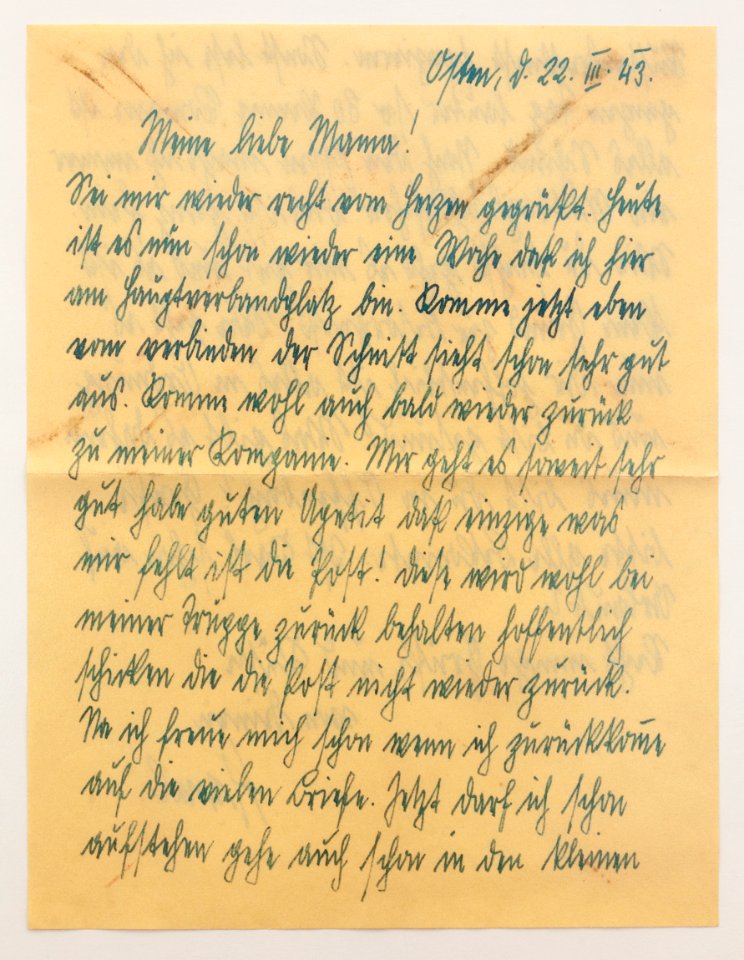 Osten, d. 22. III. 43.
Meine liebe Mama!
Sei mir wieder recht vom Herzen gegrüßt. Heute
ist es nun schon wieder eine Woche daß ich hier
am Hauptverbandplatz bin. Komme jetzt eben
vom verbinden der Schnitt sieht schon sehr gut
aus. Komme wohl auch bald wieder zurück
zu meiner Kompanie. Mir geht es soweit sehr
gut habe guten Apetit daß einzige was
mir fehlt ist die Post! diese wird wohl bei
meiner Truppe zurück behalten hoffentlich
schicken die die Post nicht wieder zurück.
Na ich freue mich schon wenn ich zurückkom̅e
auf die vielen Briefe. Jetzt darf ich schon
aufstehen gehe auch schon in den kleinen